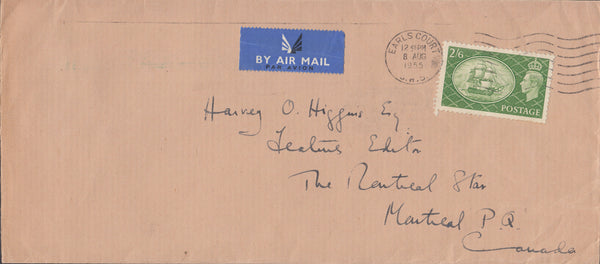 BY AIR MAIL
PAR AVION
EARLS COURT
8 AUG
1955
S.W.5
2/6
POSTAGE
Harvey O. Higgins Esq.
Features Editor
The Montreal Star
Montreal P.Q.
Canada